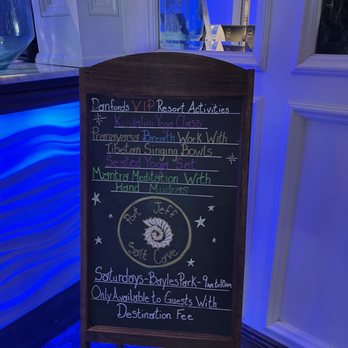 Danfords VIP Resort Activities
Kundalini Yoga Class
Pranayama Breath Work With
Tibetan Singing Bowls
Seated Yoga Set
Mantra Meditation With
Hand Mudras
Port Jeff
Salt Cave
Saturdays-Bayles Park-9am to10am
Only Available to Guests With
Destination Fee